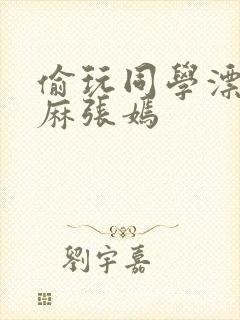 偷玩同學漂
麻張媽
劉宇嘉